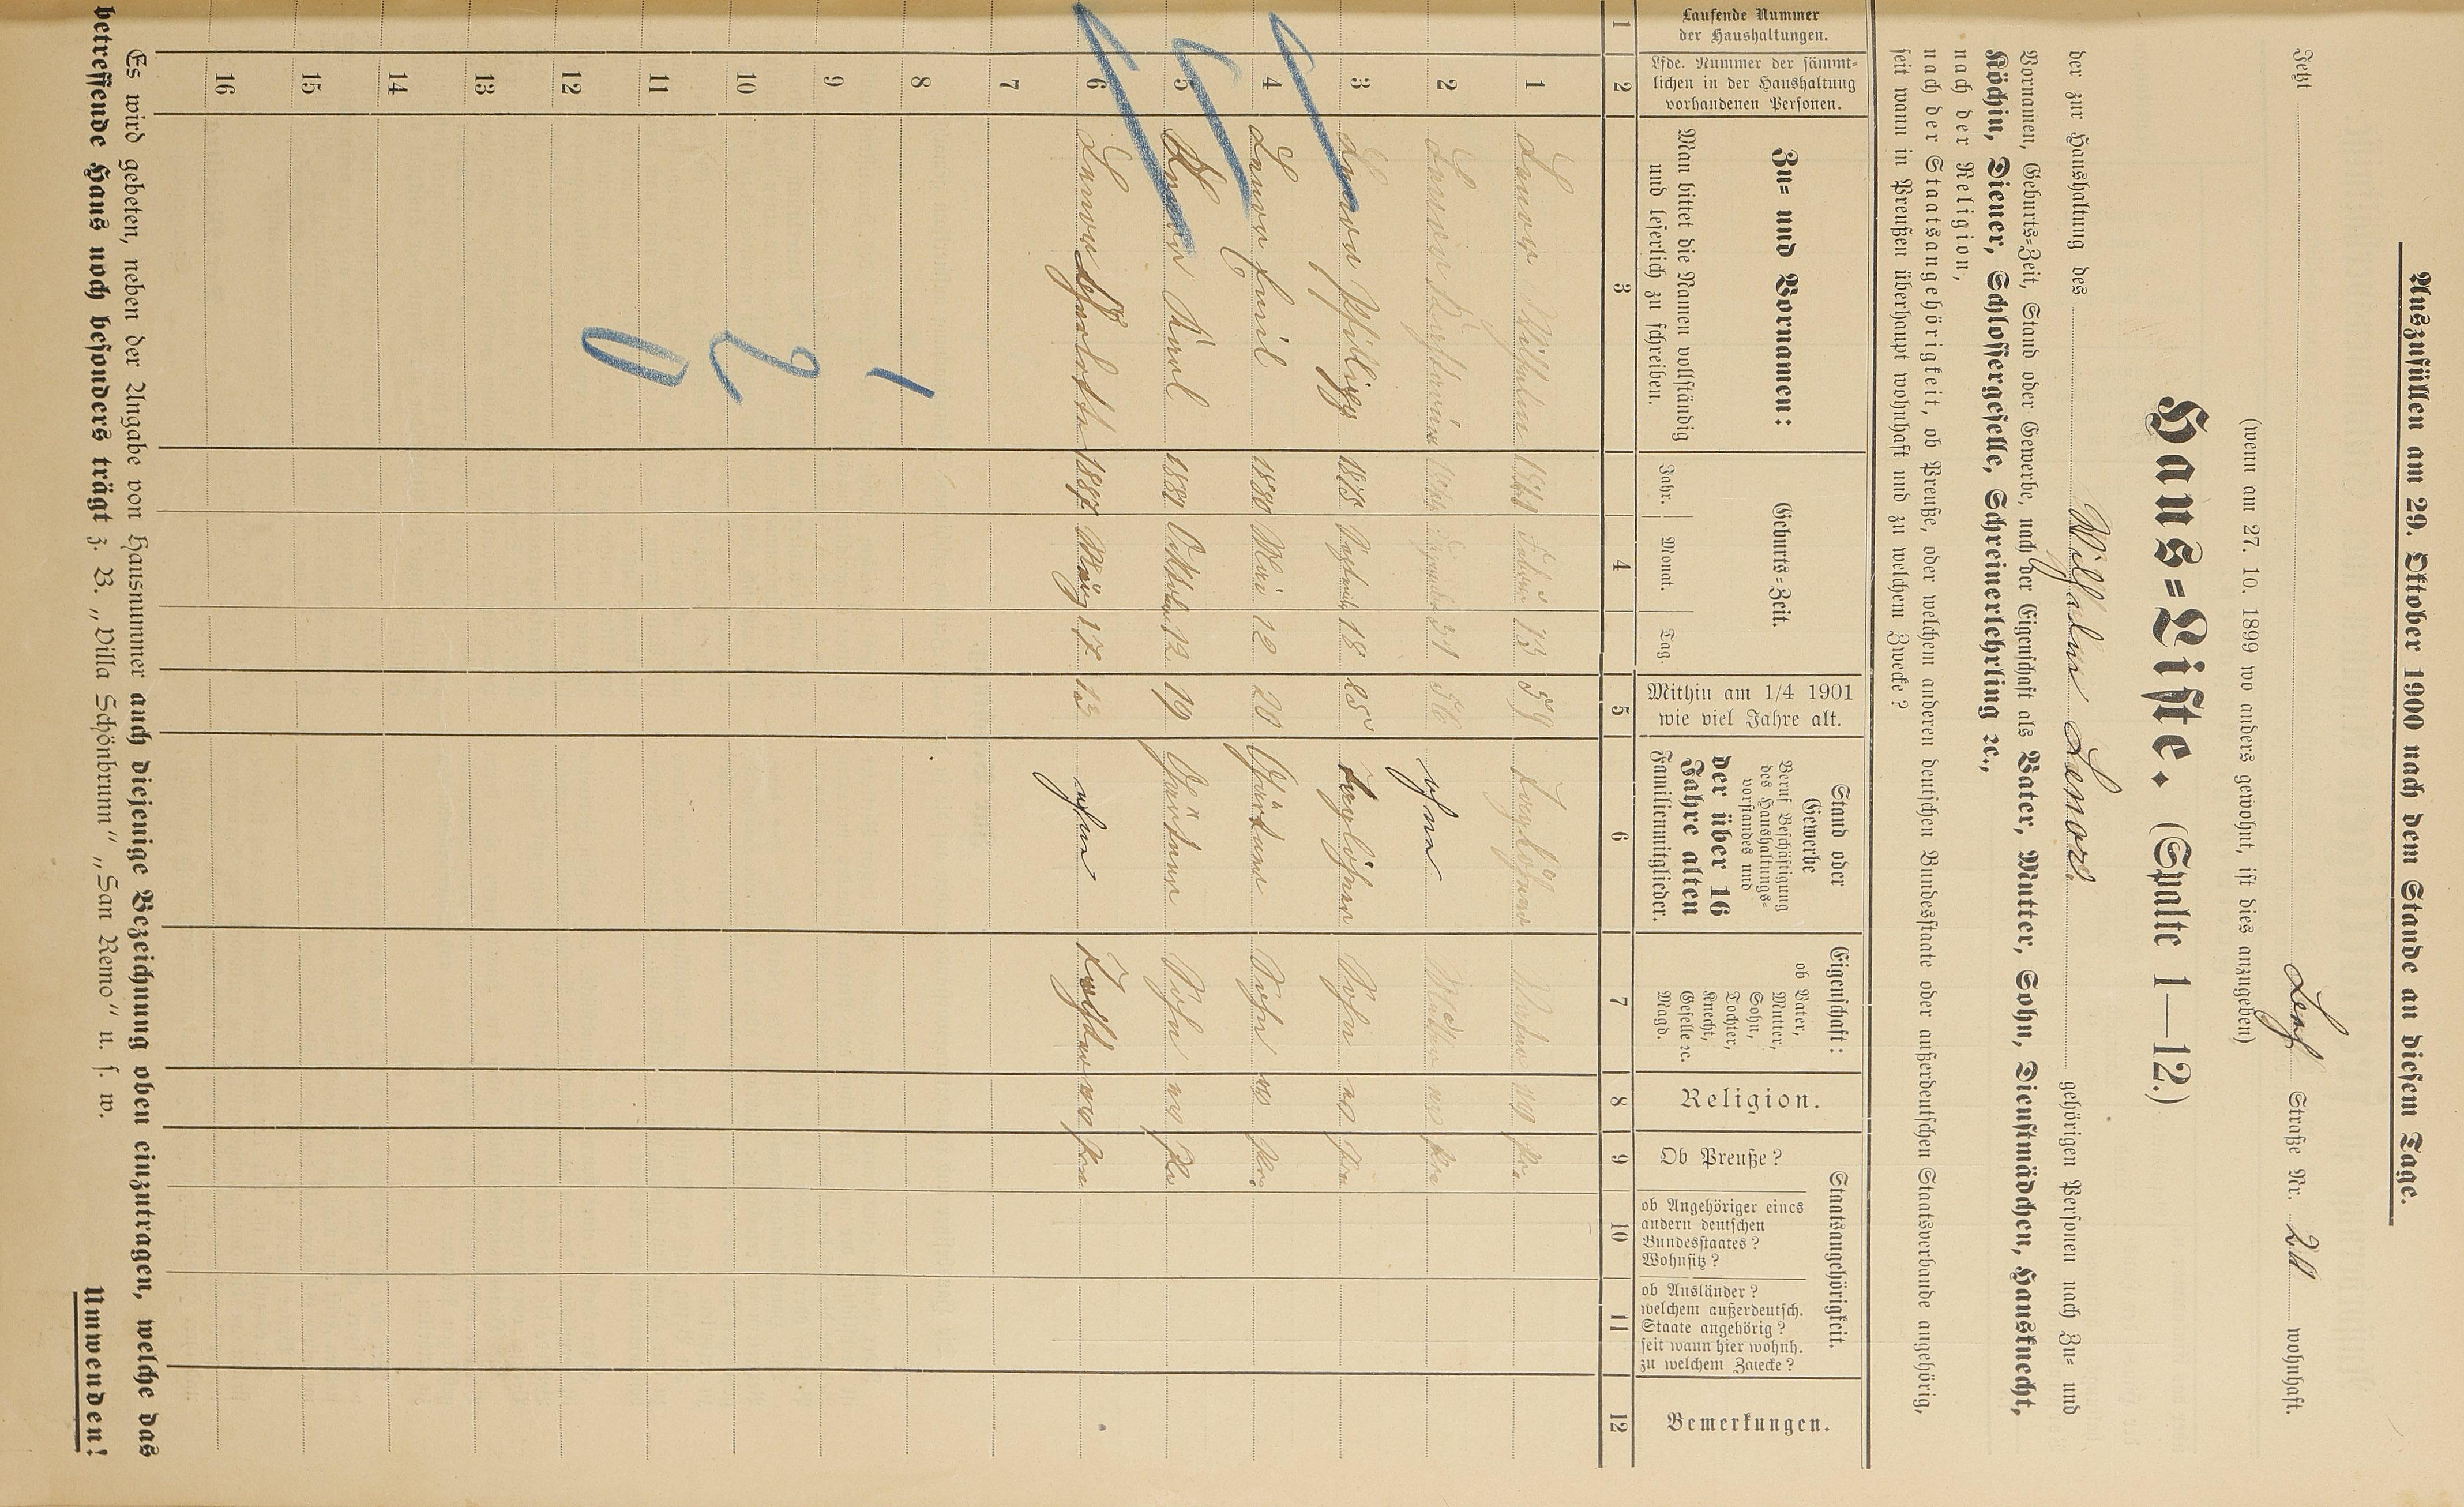 Auszufüllen am 29. Oktober 1900 nach dem Stande an diesem Tage.
Jetzt Straße Nr. wohnhaft.
(wenn am 27. 10. 1899 wo anders gewohnt, ist dies anzugeben)
Haus=Liste. (Spalte 1—12.)
der zur Haushaltung des Wilhelm gehörigen Personen nach Zu= und
Vornamen, Geburts=Zeit, Stand oder Gewerbe, nach der Eigenschaft als Vater, Mutter, Sohn, Dienstmädchen, Hausknecht,
Köchin, Diener, Schlossergeselle, Schreinerlehrling ꝛc.,
nach der Religion,
nach der Staatsangehörigkeit, ob Preuße, oder welchem anderen deutschen Bundesstaate oder außerdeutschen Staatsverbande angehörig,
seit wann in Preußen überhaupt wohnhaft und zu welchem Zwecke?
Laufende Nummer
der Haushaltungen.
Lfde. Nummer der sämmt=
lichen in der Haushaltung
vorhandenen Personen.
Zu= und Vornamen:
Man bittet die Namen vollständig
und leserlich zu schreiben.
Geburts=Zeit.
Jahr. Monat. Tag.
Mithin am 1/4 1901
wie viel Jahre alt.
Stand oder
Gewerbe
Beruf Beschäftigung
des Haushaltungs=
vorstandes und
der über 16
Jahre alten
Familienmitglieder.
Eigenschaft:
ob Vater,
Mutter,
Sohn,
Tochter,
Knecht,
Geselle ꝛc.
Magd.
Religion.
Staatsangehörigkeit.
Ob Preuße?
ob Angehöriger eines
andern deutschen
Bundesstaates?
Wohnsitz?
ob Ausländer?
welchem außerdeutsch.
Staate angehörig?
seit wann hier wohnh.
zu welchem Zwecke?
Bemerkungen.
1 2 3 4 5 6 7 8 9 10 11 12
1 Wilhelm 13 59 Taglöhner
2 31 56 ohne Mutter
3 Philipp 1875 18 25 Taglöhner Sohn
4 Emil 1880 Mai 12 20 Gärtner Sohn
5 Karl 1881 Oktober 12 19 Gärtner Sohn
6 Charlotte 1887 März 17 13 ohne Tochter
7
8
9
10
11
12
13
14
15
16
1
2
0
Es wird gebeten, neben der Angabe von Hausnummer auch diejenige Bezeichnung oben einzutragen, welche das
betreffende Haus noch besonders trägt z. B. „Villa Schönbrunn“ „San Remo“ u. s. w.
Umwenden!